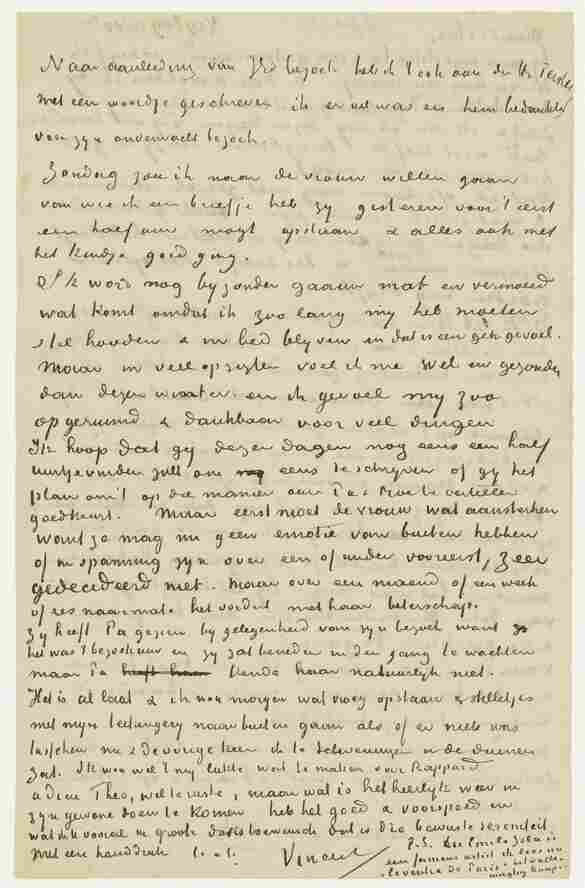 Naar aanleiding van Pa's bezoek heb ik 't ook aan den Hr Tersteeg
met een woordje geschreven ik er uit was eens hem bedankte
voor zijn onverwacht bezoek.
Zondag zou ik naar de vrouw willen gaan
van wie ik een briefje heb zij gisteren voor 't eerst
een half uur mogt opstaan & alles ook met
het kindje goed ging.
Ik word nog byzonder gaauw mat en vermoeid
wat komt omdat ik zoo lang my heb moeten
stil houden & in bed blyven en dat is een gek gevoel.
Maar in veel opzigten voel ik me wel en gezonder
dan dezen winter en ik gevoel my zoo
opgeruimd & dankbaar voor veel dingen
Ik hoop dat gy dezer dagen nog eens een half
uurtje vinden zult om eens te schryven of gy het
plan om 't op die manier aan Pa & Moe te vertellen
goedkeurt. Maar eerst moet de vrouw wat aansterken
want ze mag nu geen emotie van buiten hebben
of in spanning zyn over een of ander vooreerst, zeer
gedecideerd niet. Maar over een maand of een week
of zes naarmate het vordert met haar beterschap.
Zy heeft Pa gezien by gelegenheid van zyn bezoek want
het was 't bezoekuur en zy zat beneden in den gang te wachten
maar Pa kende haar natuurlyk niet.
Het is al laat & ik wou morgen wat vroeg opstaan & stelletjes
met myn teekengerij naar buiten gaan als of er niets was
tusschen nu & de vorige keer ik te Scheveningen in de duinen
zat. Ik wou wel 't my lukte wat te maken voor Rappard
adieu Theo, wel te ruste, maar wat is het heerlyk weer in
zyn gewone doen te komen heb het goed & voorspoed en
wat ik U vooral in groote dosis toewensch dat is die bewuste sereniteit.
met een handdruk t. à t. Vincent
P.S. die Emile Zola is
een fameus artist ik lees nu
le ventre de Paris